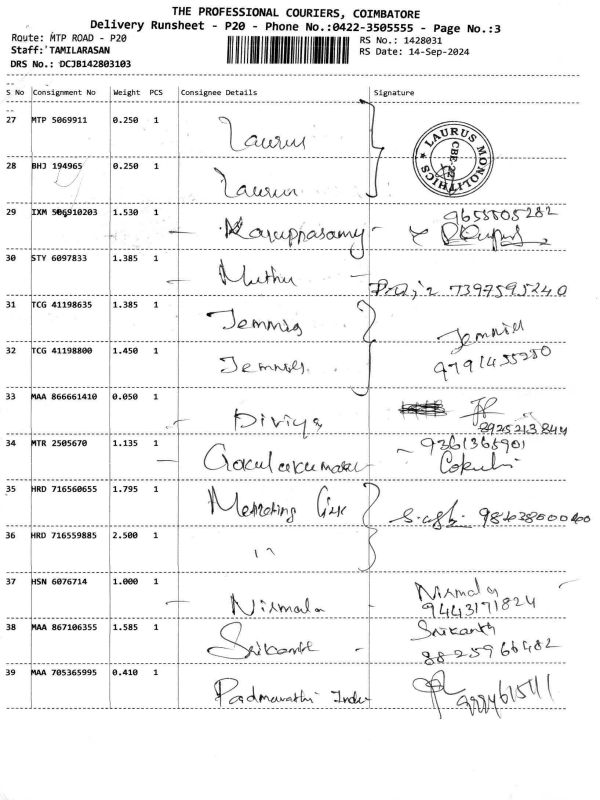 THE PROFESSIONAL COURIERS, COIMBATORE
Delivery Runsheet - P20 - Phone No.:0422-3505555 - Page No.:3
Route: MTP ROAD - P20
RS No.: 1428031
Staff: TAMILARASAN
RS Date: 14-Sep-2024
DRS No.: DCJB142803103
S No Consignment No Weight PCS Consignee Details Signature
27 MTP 5069911 0.250 1 Laurus
LAURUS MONOLITHICS CBE-22
28 BHJ 194965 0.250 1 Laurus
29 IXM 506910203 1.530 1 Karuppasamy
30 STY 6097833 1.385 1 Muthu 7397595240
31 TCG 41198635 1.385 1
32 TCG 41198800 1.450 1 9791455250
33 MAA 866661410 0.050 1 Diviya 8925213844
34 MTR 2505670 1.135 1 9361365901
35 HRD 716560655 1.795 1
36 HRD 716559885 2.500 1 "
37 HSN 6076714 1.000 1 Nirmala Nirmala 9443171824
38 MAA 867106355 1.585 1 Srikanth Srikanth 8825966482
39 MAA 705365995 0.410 1